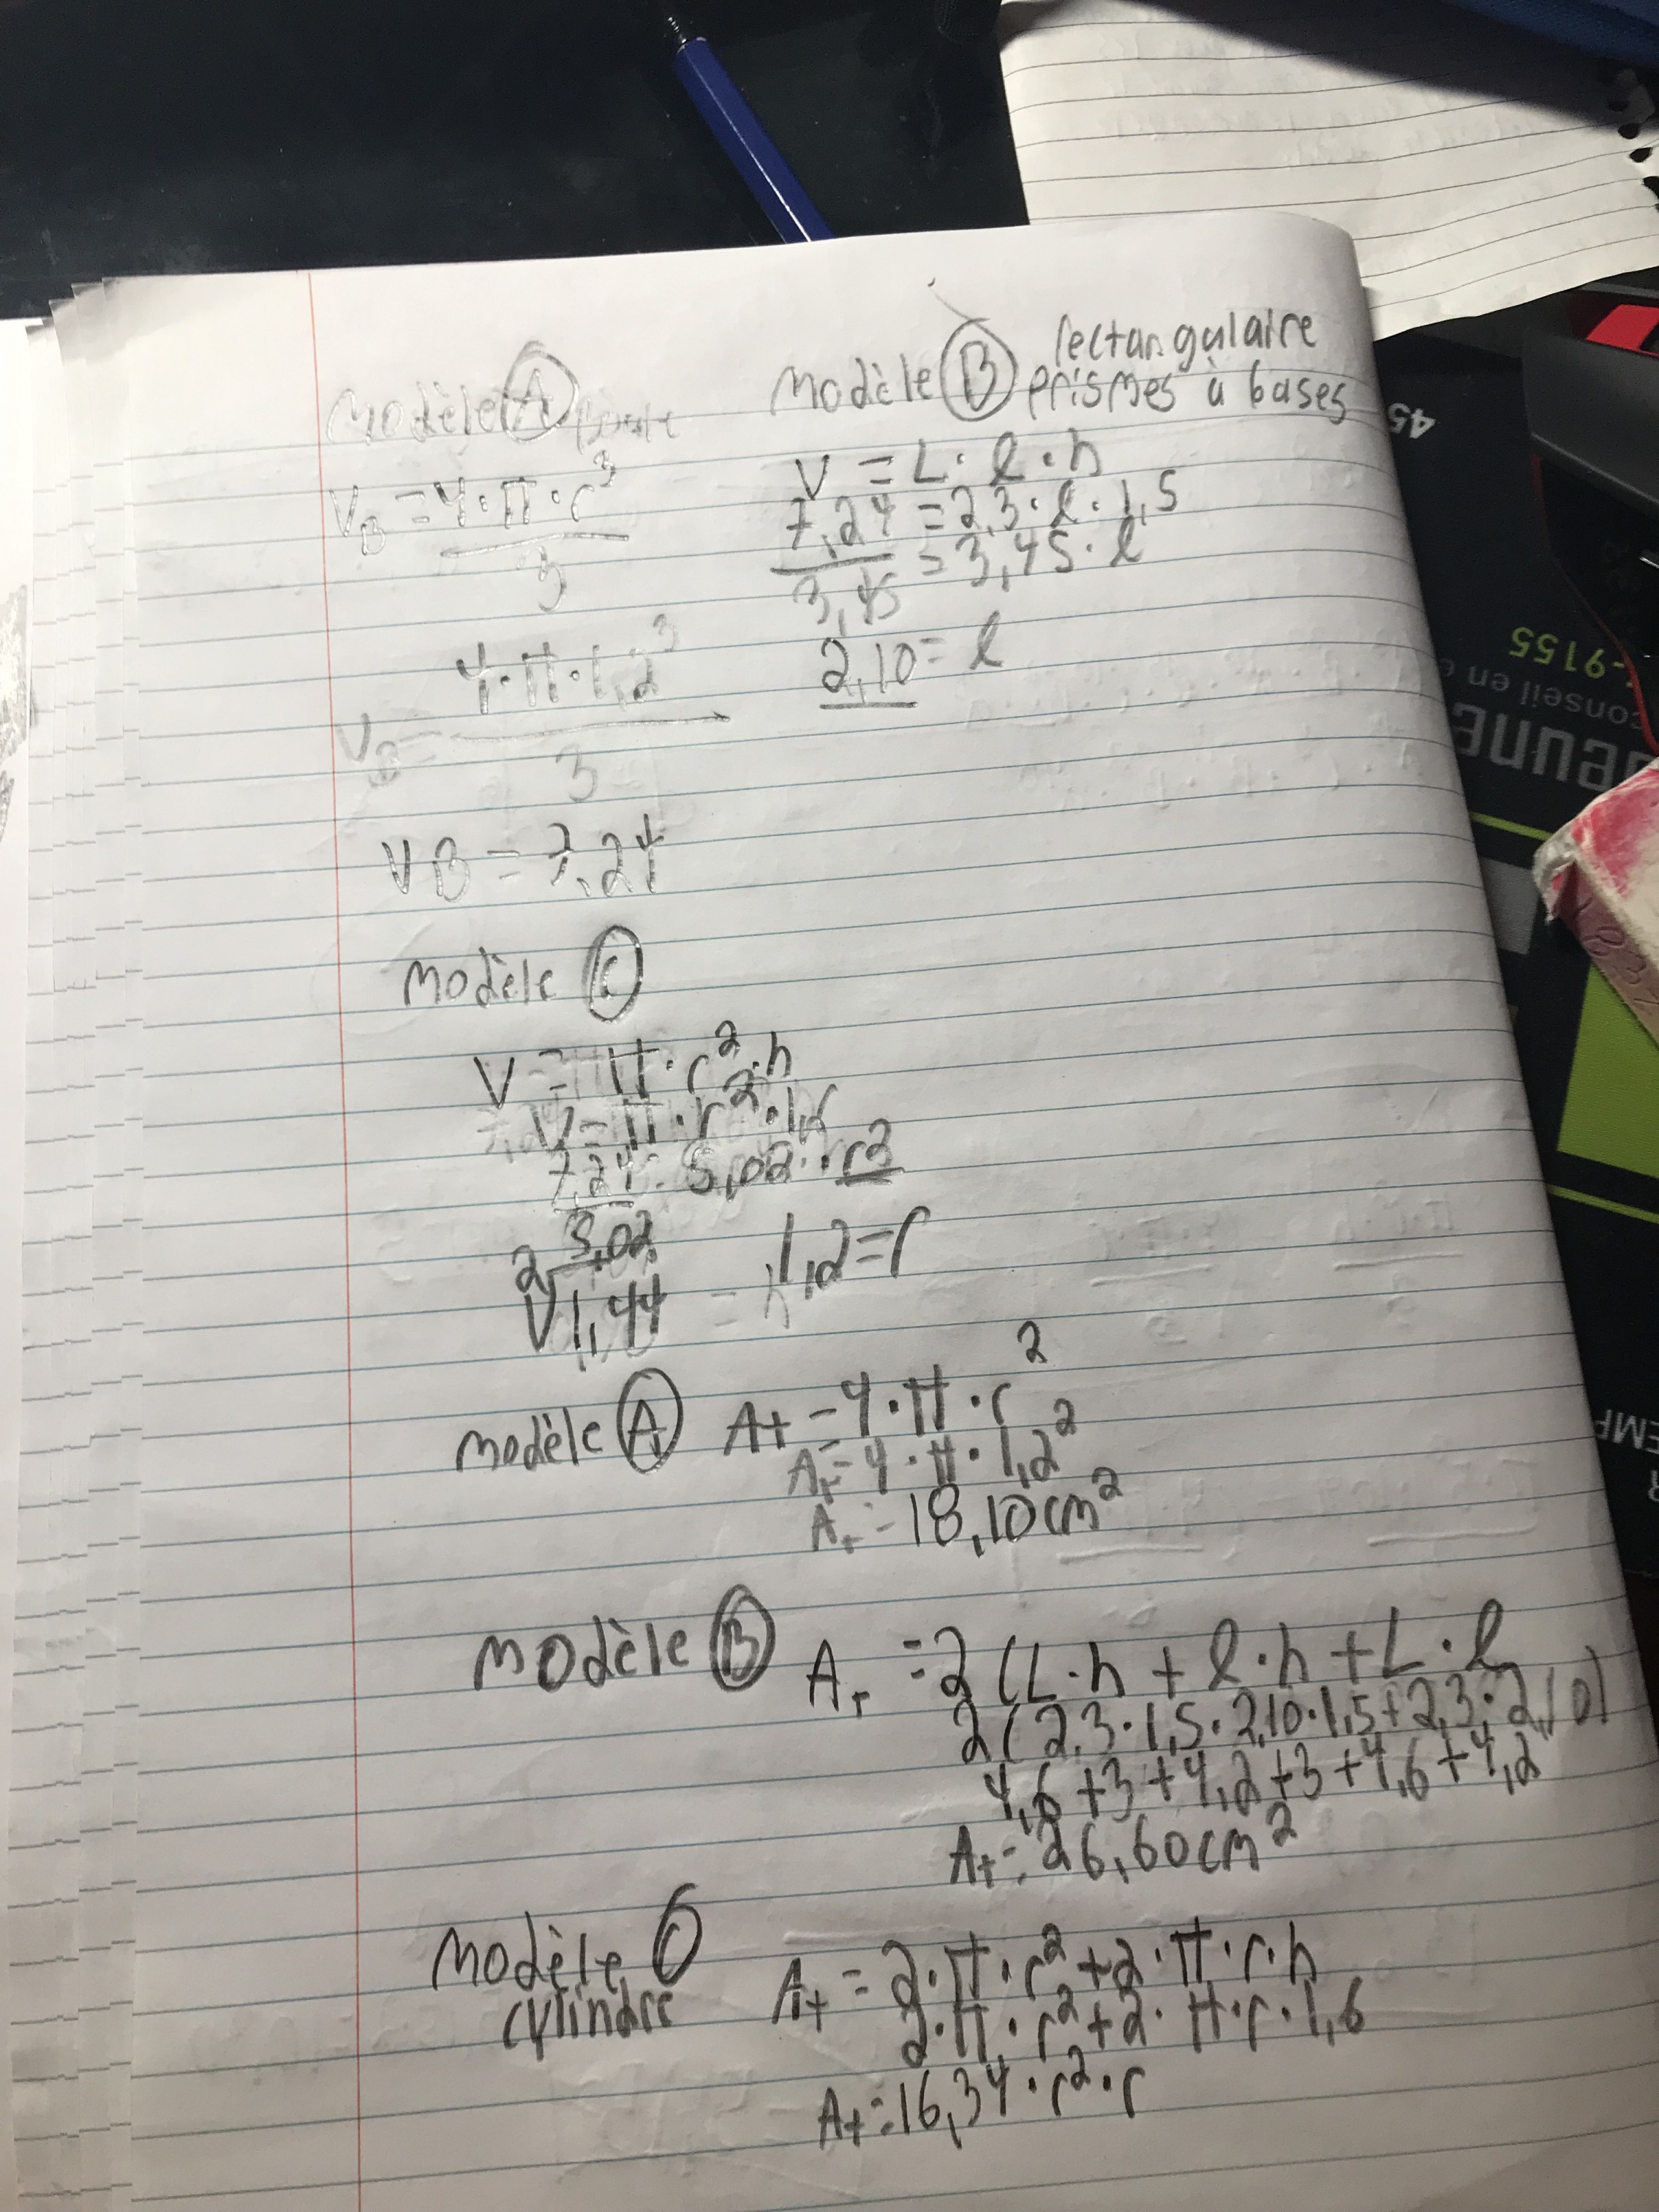 Modèle A Boule
V_B = 4·π·r³
3
V_B = 4·π·1,2³
3
VB = 7,24
Modèle B rectangulaire
prismes à bases
V = L·l·h
7,24 = 2,3·l·1,5
= 3,45·l
3,45
2,10 = l
Modèle C
V = π·r²·h
V = π·r²·1,6
7,24 5,02·r²
5,02
2√1,44 1,2=r
modèle A A_T = 4·π·r²
A_T = 4·π·1,2²
A_T = 18,10cm²
modèle B A_T = 2(L·h + l·h + L·l
2(2,3·1,5·2,10·1,5+2,3·2,10)
4,6+3+4,2+3+4,6+4,2
A_T = 26,60cm²
Modèle C
cylindre
A_T = 2·π·r²+2·π·r·h
2·π·r²+2·π·r·1,6
A_T = 16,34·r²·r
45
-9155
conseil en
jeune
EMP
R